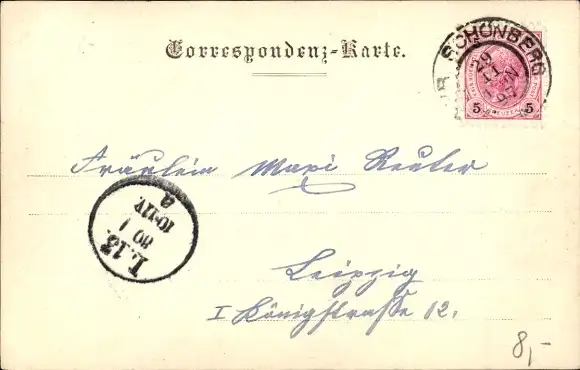 Correspondenz-Karte.
SCHÖNBERG
29
11
97
5 5
Fräulein Maxi Reuter
L.13.
10-11V
a
Leipzig
I Königstraße 12.
8,-